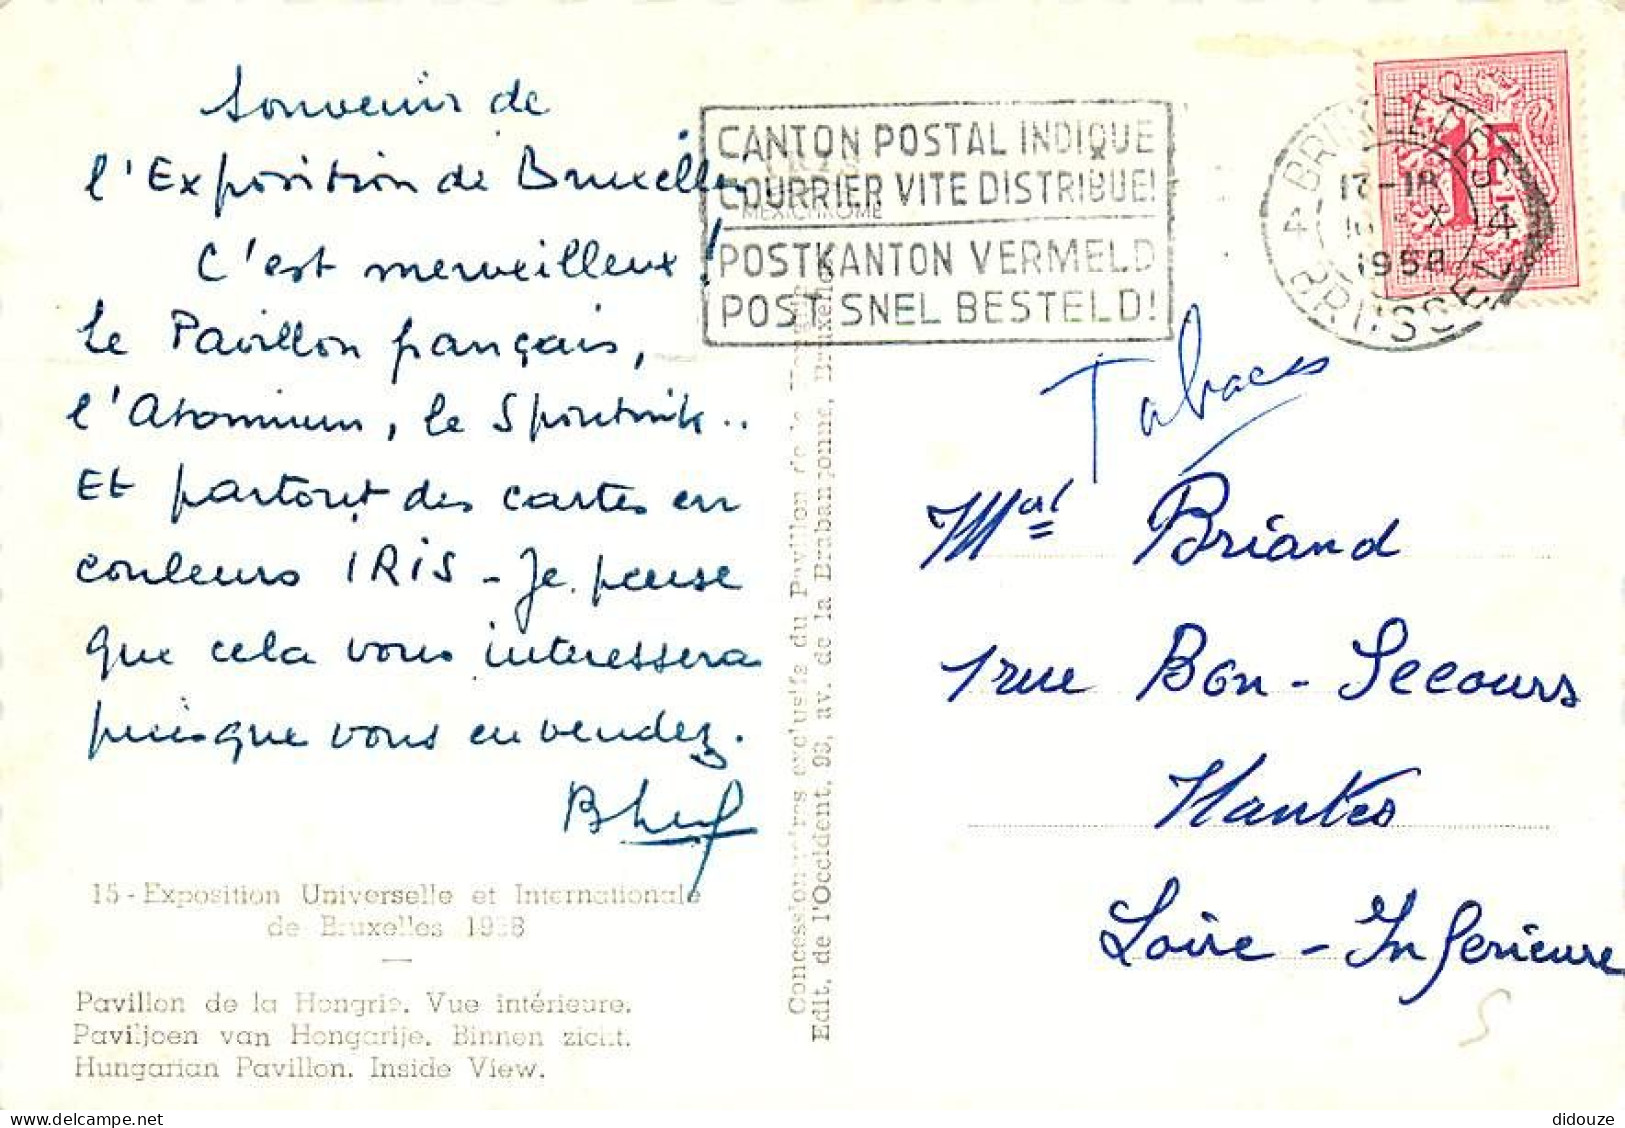 Souvenir de
l'Exposition de Bruxelles
C'est merveilleux !
Le Pavillon français,
l'Atomium, le Spoutnik..
Et partout des cartes en
couleurs IRIS - Je pense
que cela vous interessera
puisque vous en vendez.
15 - Exposition Universelle et Internationale
de Bruxelles 1958
Pavillon de la Hongrie. Vue intérieure.
Paviljoen van Hongarije. Binnen zicht.
Hungarian Pavillon. Inside View.
MEXICHROME
Concessionnaires exclusifs du Pavillon de la Hongrie
Edit. de l'Occident, 99, av. de la Brabançonne, Bruxelles
CANTON POSTAL INDIQUE
COURRIER VITE DISTRIBUE!
POSTKANTON VERMELD
POST SNEL BESTELD!
4 BRUXELLES 4
17-18
X
1958
BRUSSEL
Tabacs
Mal Briand
1 rue Bon-Secours
Nantes
Loire-Inferieure
S
didouze